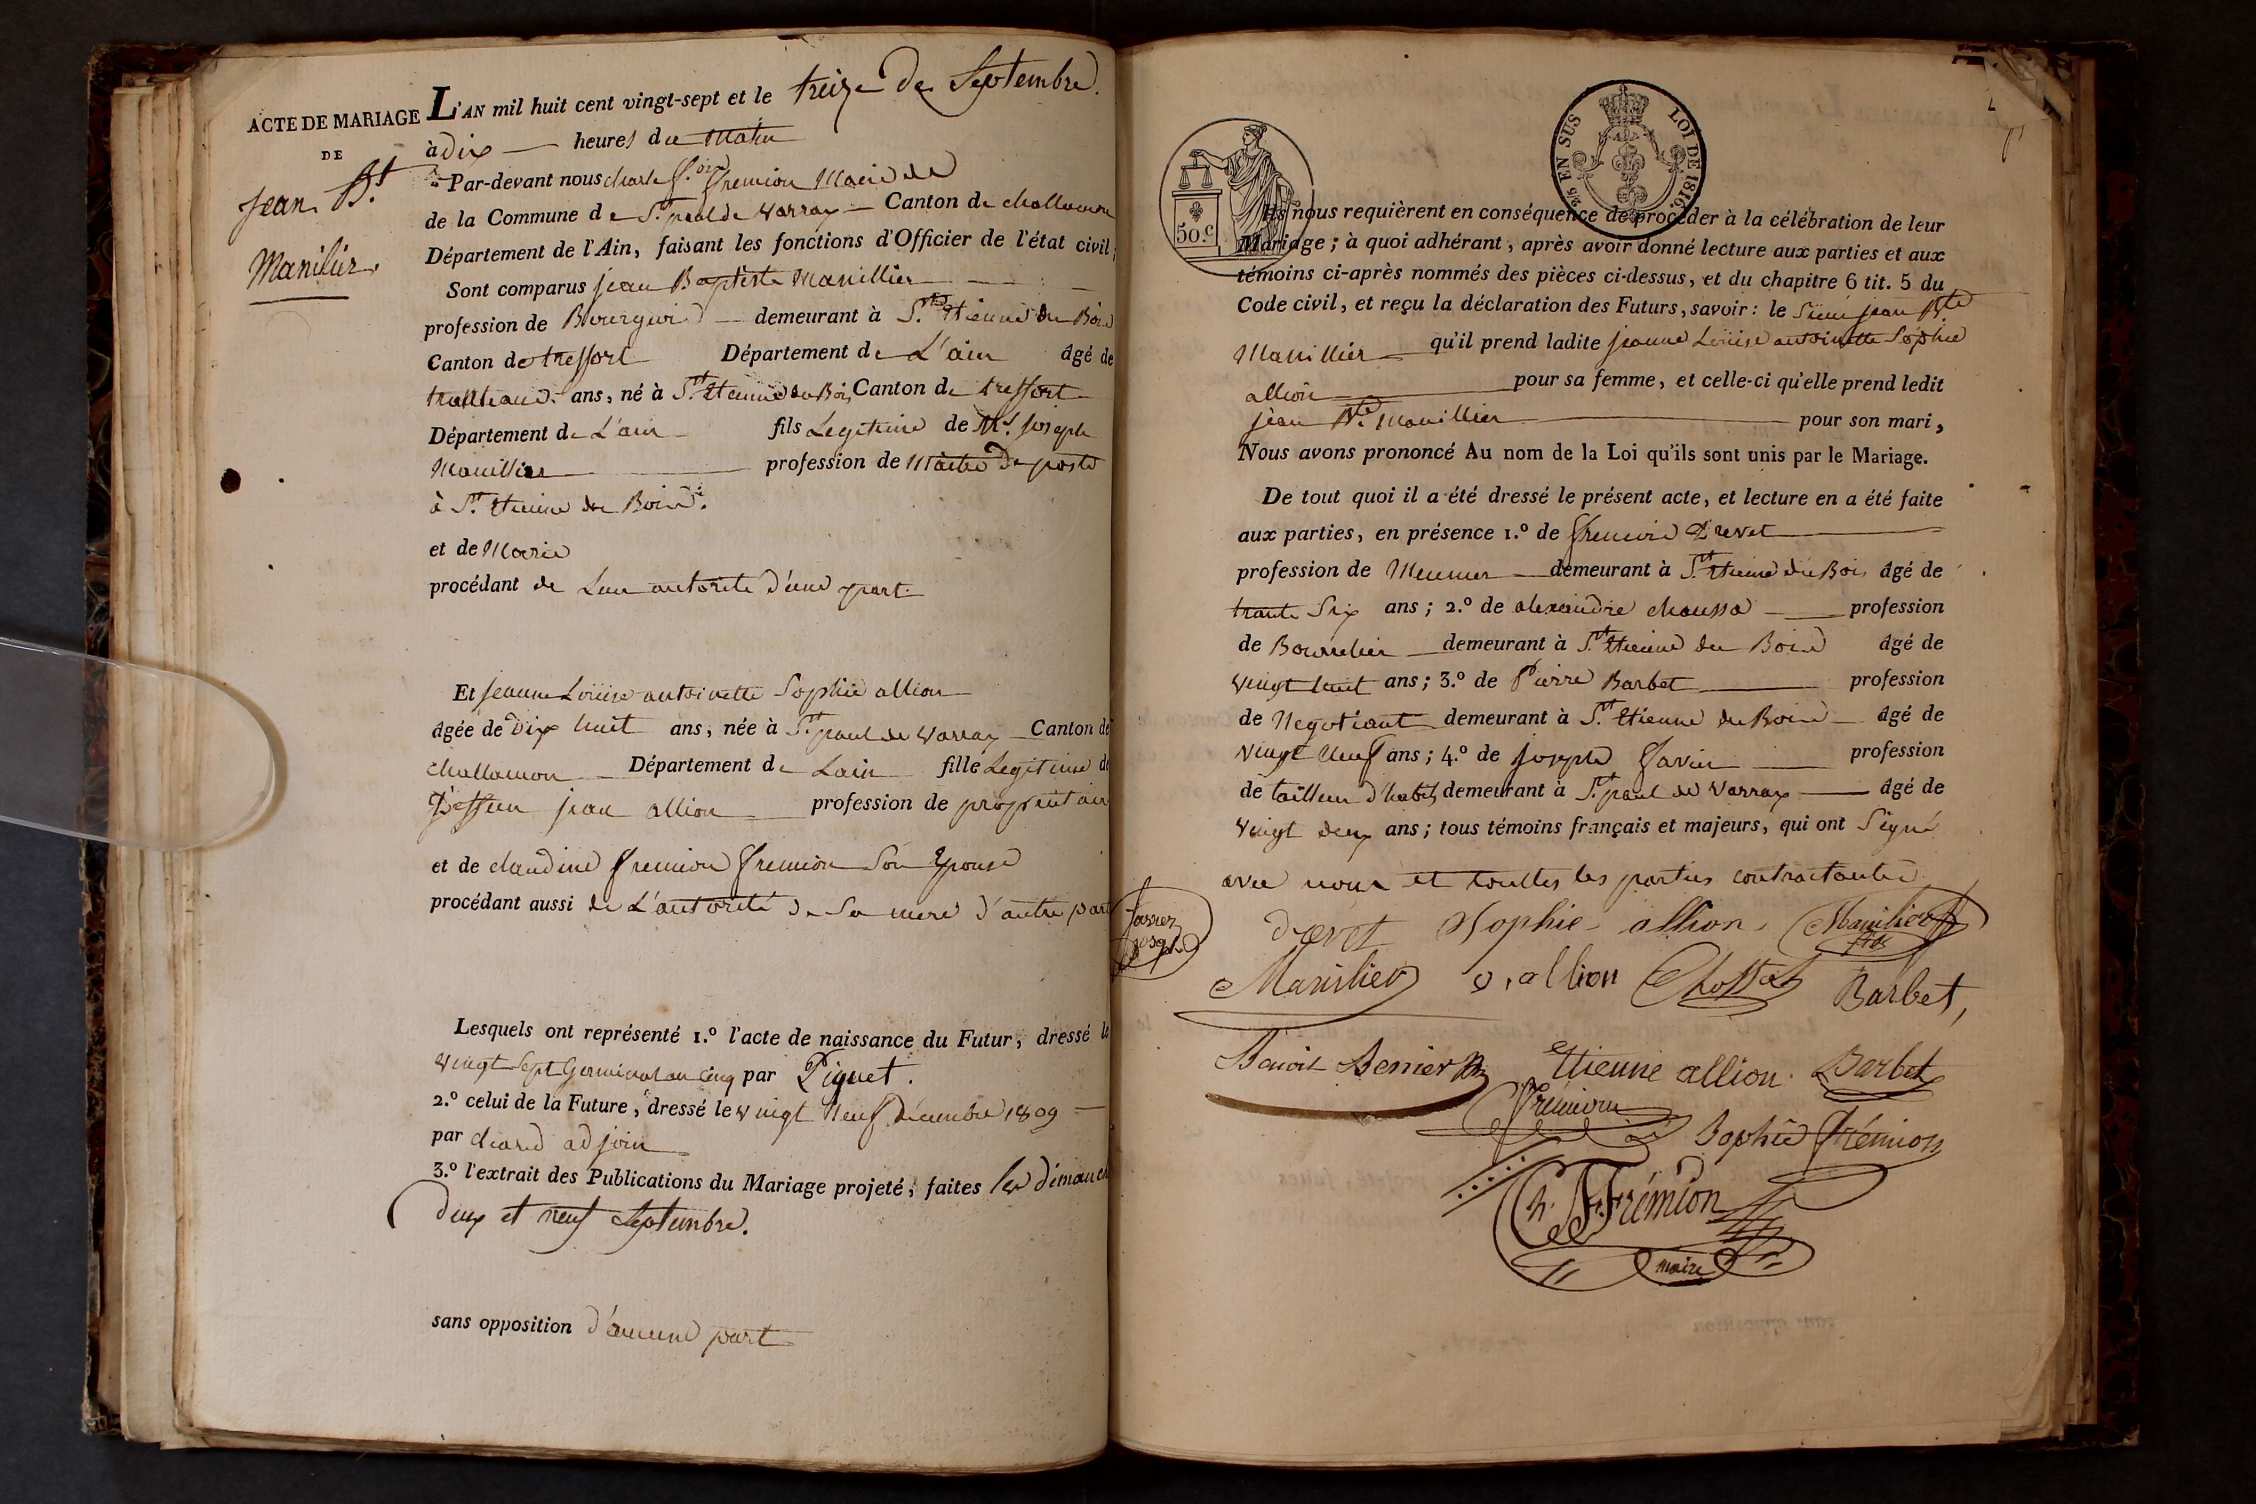 ACTE DE MARIAGE
DE
Jean Bt
Manilier
L'AN mil huit cent vingt-sept et le treize de Septembre
à dix heures du Matin
Par-devant nous charle f. fremion Maire de
de la Commune de St. paul de Varax Canton de challamon
Département de l'Ain, faisant les fonctions d'Officier de l'état civil,
Sont comparus jean Baptiste Manillier
profession de demeurant à St. Etienne du Bois
Canton de treffort Département de L'ain âgé de
ans, né à St. Etienne du Bois Canton de treffort
Département de L'ain fils Legitime de Mr. joseph
Manillier profession de Maitre de poste
à St. Etienne du Bois.
et de Marie
procédant de autorite d'une part.
Et jeanne Louise antoinette Sophie allion
âgée de Dix huit ans, née à St. paul de Varax Canton de
challamon Département de Lain fille Legitime de
jean allion profession de propriétaire
et de claudine fremion fremion Son Epouse
procédant aussi de L'autorité de Sa mere d'autre part
Lesquels ont représenté 1.º l'acte de naissance du Futur, dressé le
vingt Sept Germinal an cinq par Piquet.
2.º celui de la Future, dressé le vingt Neuf Décembre 1809
par adjoin
3.º l'extrait des Publications du Mariage projeté, faites les dimanches
deux et neuf Septembre.
sans opposition d'aucune part
50.c
EN SUS
LOI DE 1816
Ils nous requièrent en conséquence de procéder à la célébration de leur
Mariage; à quoi adhérant, après avoir donné lecture aux parties et aux
témoins ci-après nommés des pièces ci-dessus, et du chapitre 6 tit. 5 du
Code civil, et reçu la déclaration des Futurs, savoir: le Sieur jean Bte
Manillier qu'il prend ladite jeanne Louise antoinette Sophie
allion pour sa femme, et celle-ci qu'elle prend ledit
jean Bte. Manillier pour son mari,
Nous avons prononcé Au nom de la Loi qu'ils sont unis par le Mariage.
De tout quoi il a été dressé le présent acte, et lecture en a été faite
aux parties, en présence 1.º de Drevet
profession de Meunier demeurant à St. Etienne du Bois âgé de
trante Six ans; 2.º de alexandre chaussa profession
de Bourrelier demeurant à St. Etienne du Bois âgé de
vingt huit ans; 3.º de Pierre Barbet profession
de Negotiant demeurant à St. Etienne du Bois âgé de
vingt Neuf ans; 4.º de joseph favier profession
de tailleur d'habit demeurant à St. paul de Varax âgé de
vingt deux ans; tous témoins français et majeurs, qui ont Signé
avec nous et toutes les parties contractante
favier
joseph
drevet Sophie allion Manilier
fils
Manilier allion Chossat Barbet,
Benoit Bernier Etienne allion Barbet
frémion
Sophie Frémion
Ch. F. Frémion
maire